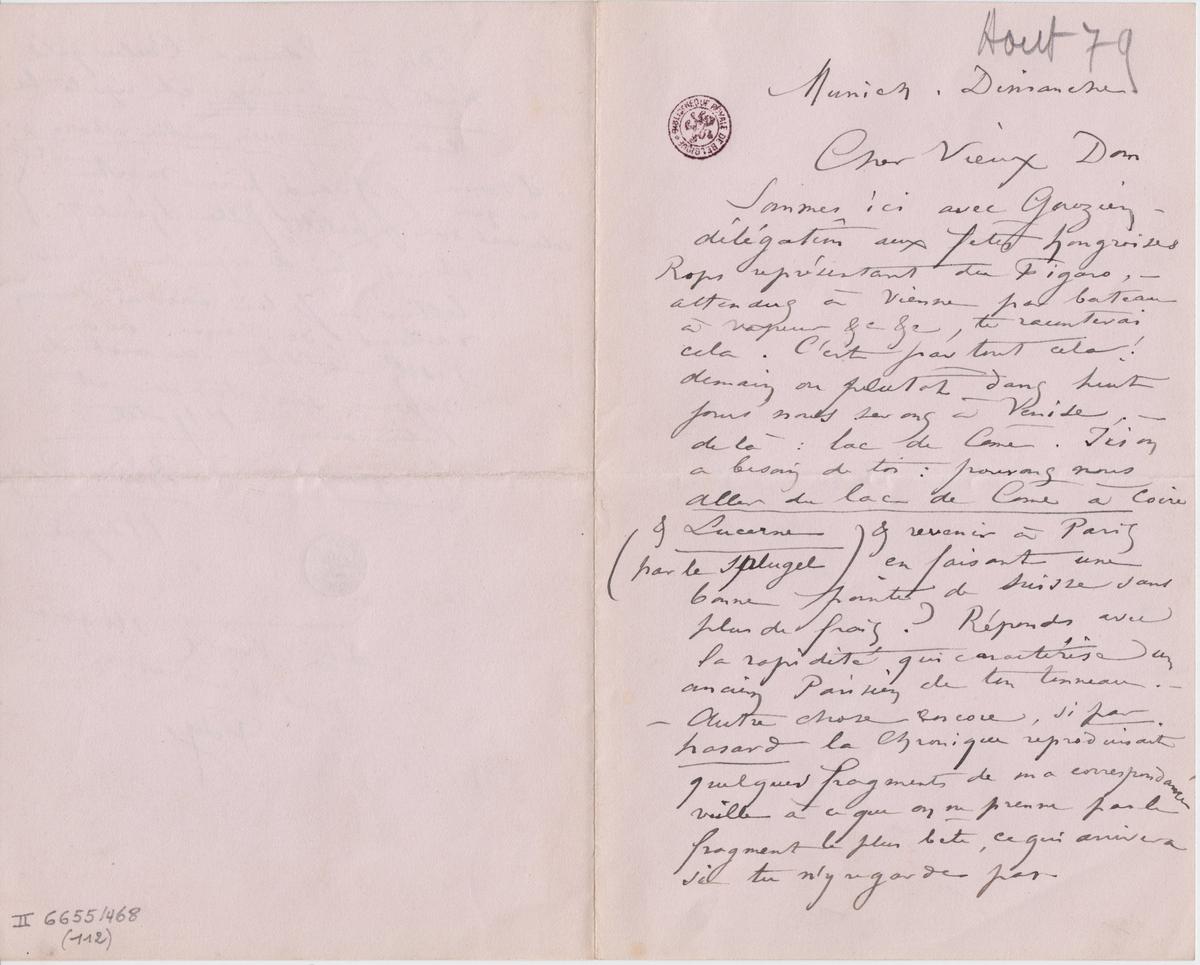 Aout 79
Munich. Dimanche
BIBLIOTHÈQUE ROYALE DE BELGIQUE
Cher Vieux Dom
Sommes ici avec Gouzien –
délégation aux fetes hongroises
Rops représentant du Figaro, –
attendus à Vienne par bateau
à vapeur &c &c, te raconterai
cela. C'est pas tout cela!
demain ou plutot dans huit
jours nous serons à Venise, –
de là : lac de Come. Ici on
a besoin de toi : pouvons nous
aller du lac de Come à Coire
& Lucerne & revenir à Paris
(par le Splugel) en faisant une
bonne pointe de Suisse sans
plus de frais? Réponds avec
la rapidité qui caractérise un
ancien Parisien de ton tonneau. –
– Autre chose encore, si par
hasard la Chronique reproduisait
quelques fragments de ma correspondance
veille à ce que on ne prenne pas le
fragment le plus bete, ce qui arrivera
si tu n'y regardes pas
II 6655/468
(112)